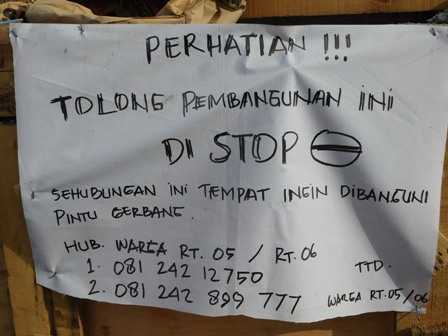 PERHATIAN !!!
TOLONG PEMBANGUNAN INI
DI STOP
SEHUBUNGAN INI TEMPAT INGIN DIBANGUNI
PINTU GERBANG.
HUB. WARGA RT. 05 / RT. 06
1. 081 242 12750
2. 081 242 899 777
TTD.
WARGA RT. 05/06